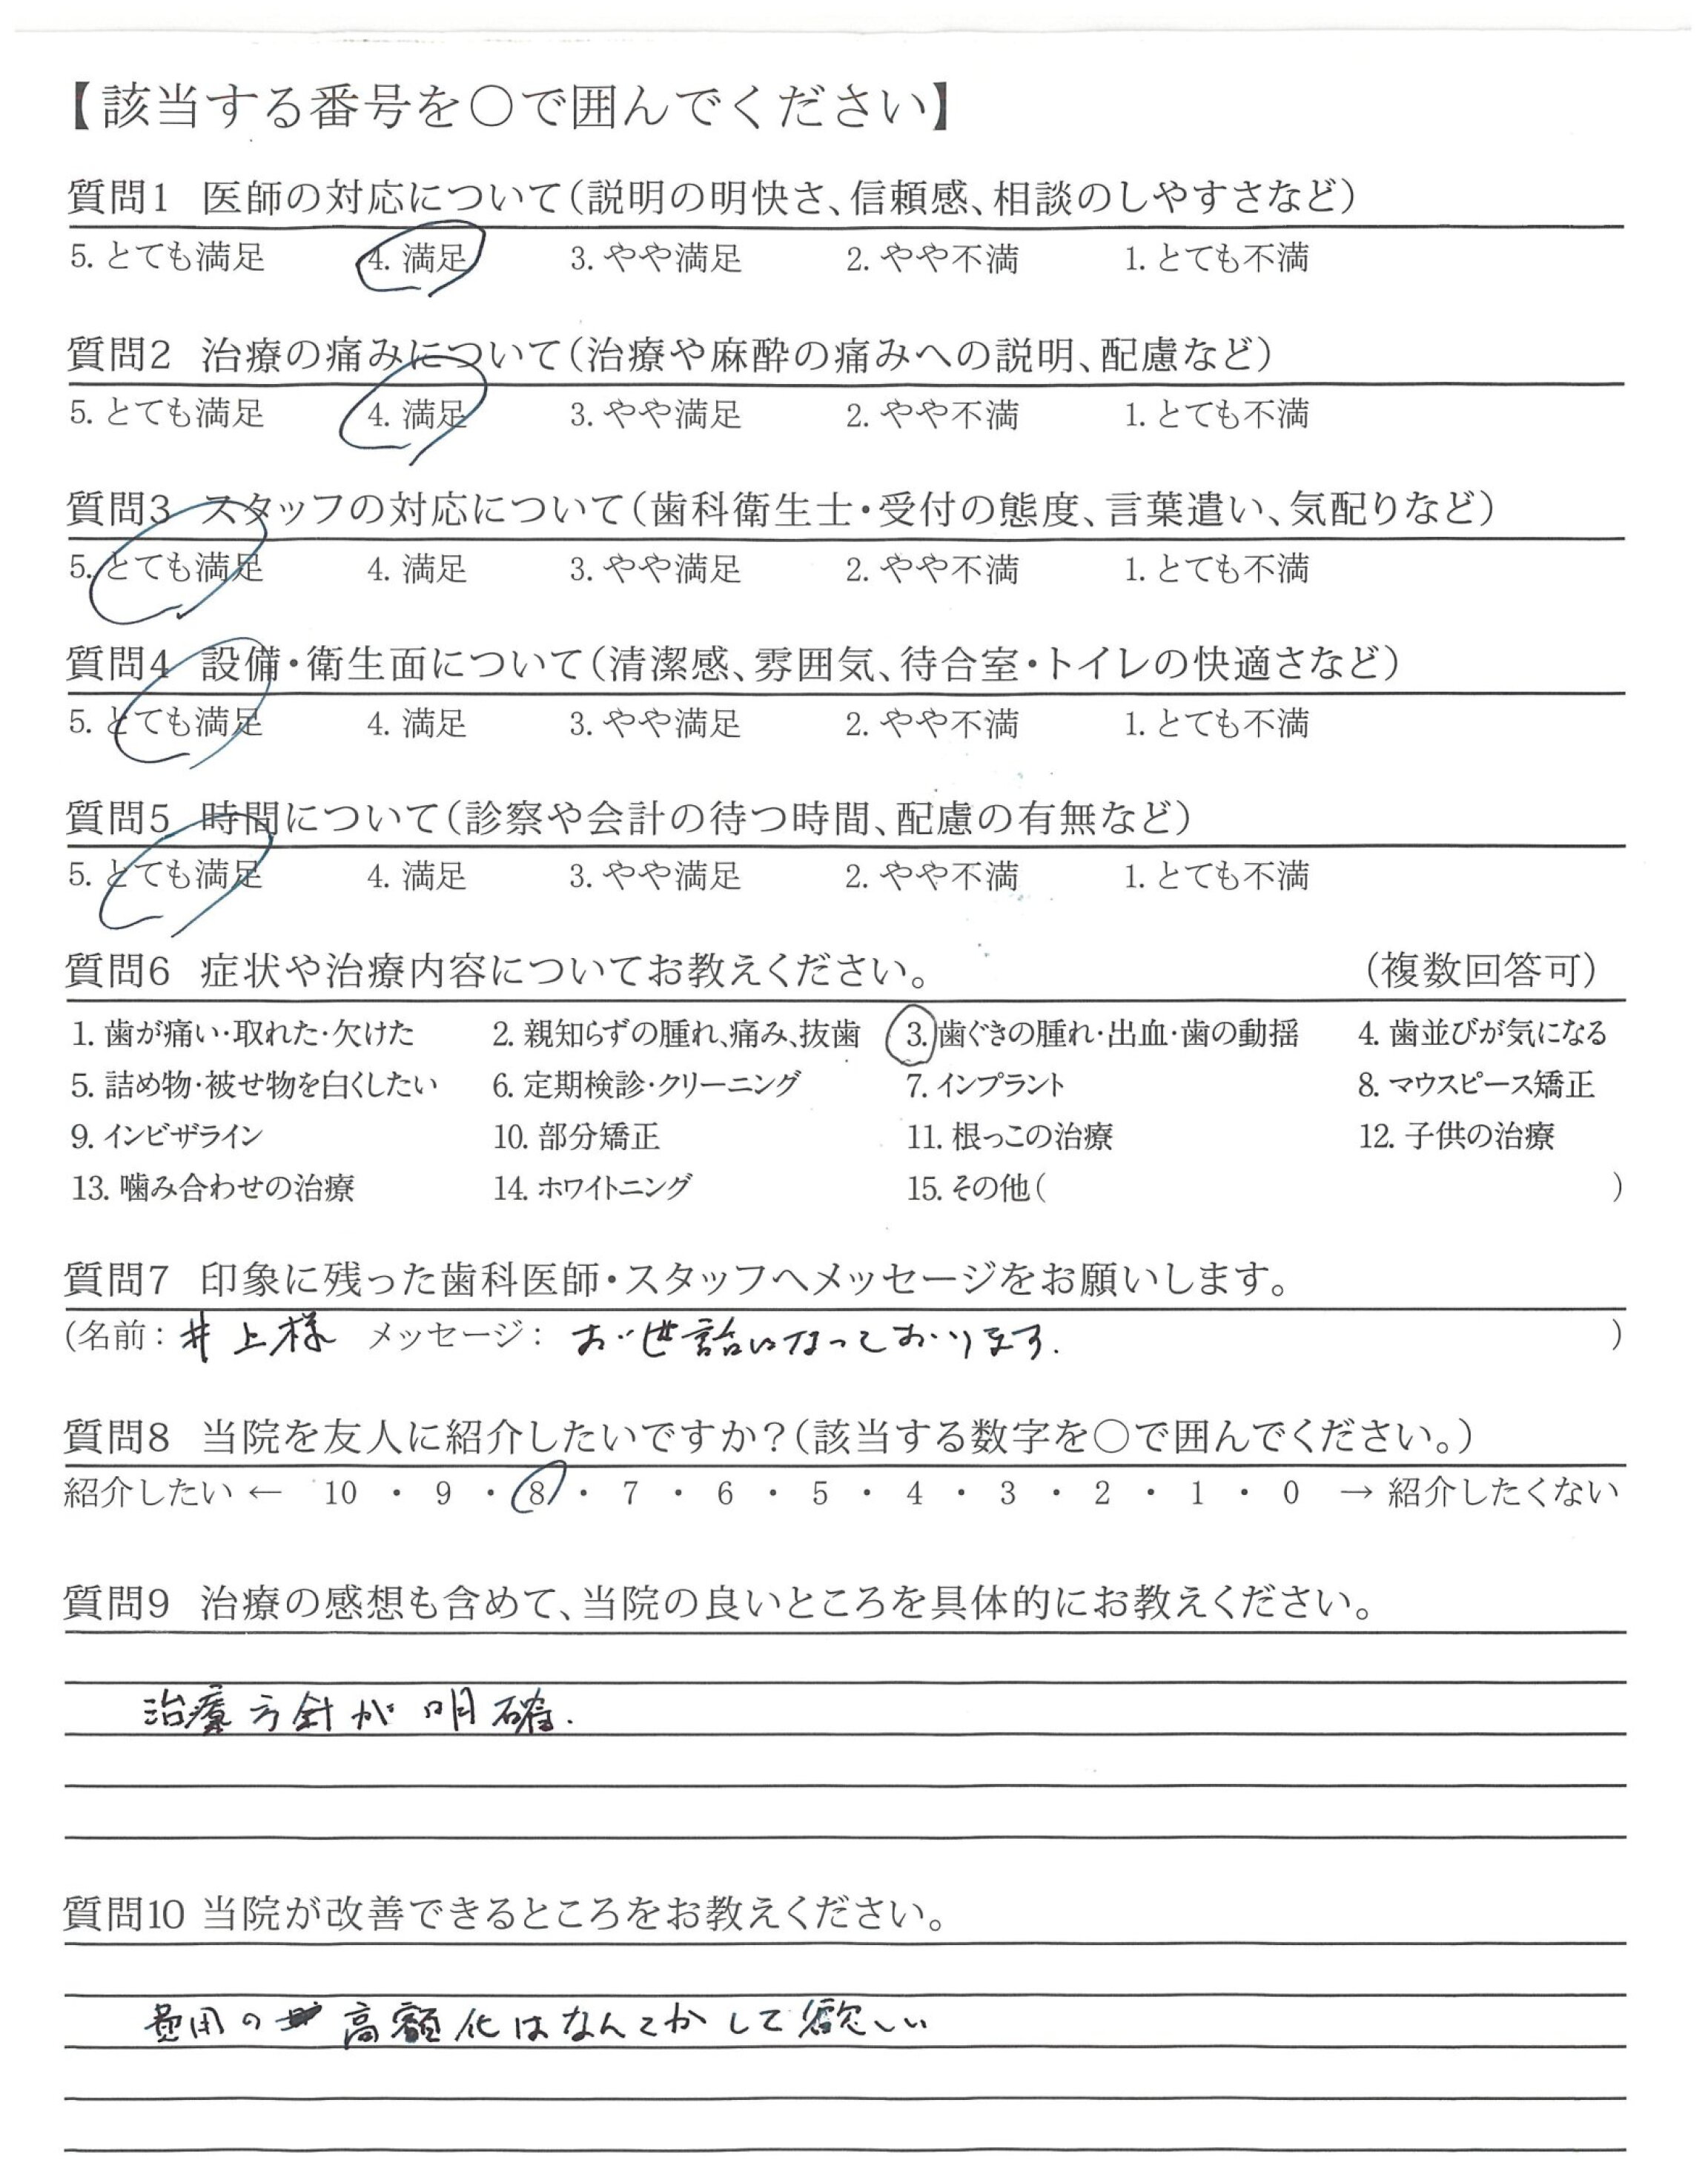 【該当する番号を○で囲んでください】
質問1 医師の対応について(説明の明快さ、信頼感、相談のしやすさなど)
5. とても満足 4. 満足 3. やや満足 2. やや不満 1. とても不満
質問2 治療の痛みについて(治療や麻酔の痛みへの説明、配慮など)
5. とても満足 4. 満足 3. やや満足 2. やや不満 1. とても不満
質問3 スタッフの対応について(歯科衛生士・受付の態度、言葉遣い、気配りなど)
5. とても満足 4. 満足 3. やや満足 2. やや不満 1. とても不満
質問4 設備・衛生面について(清潔感、雰囲気、待合室・トイレの快適さなど)
5. とても満足 4. 満足 3. やや満足 2. やや不満 1. とても不満
質問5 時間について(診察や会計の待つ時間、配慮の有無など)
5. とても満足 4. 満足 3. やや満足 2. やや不満 1. とても不満
質問6 症状や治療内容についてお教えください。 (複数回答可)
1. 歯が痛い・取れた・欠けた 2. 親知らずの腫れ、痛み、抜歯 3. 歯ぐきの腫れ・出血・歯の動揺 4. 歯並びが気になる
5. 詰め物・被せ物を白くしたい 6. 定期検診・クリーニング 7. インプラント 8. マウスピース矯正
9. インビザライン 10. 部分矯正 11. 根っこの治療 12. 子供の治療
13. 噛み合わせの治療 14. ホワイトニング 15. その他( )
質問7 印象に残った歯科医師・スタッフへメッセージをお願いします。
(名前: 井上様 メッセージ: お世話になっております. )
質問8 当院を友人に紹介したいですか?(該当する数字を○で囲んでください。)
紹介したい ← 10 ・ 9 ・ 8 ・ 7 ・ 6 ・ 5 ・ 4 ・ 3 ・ 2 ・ 1 ・ 0 → 紹介したくない
質問9 治療の感想も含めて、当院の良いところを具体的にお教えください。
治療方針が明確.
質問10 当院が改善できるところをお教えください。
費用の高額化はなんとかして欲しい